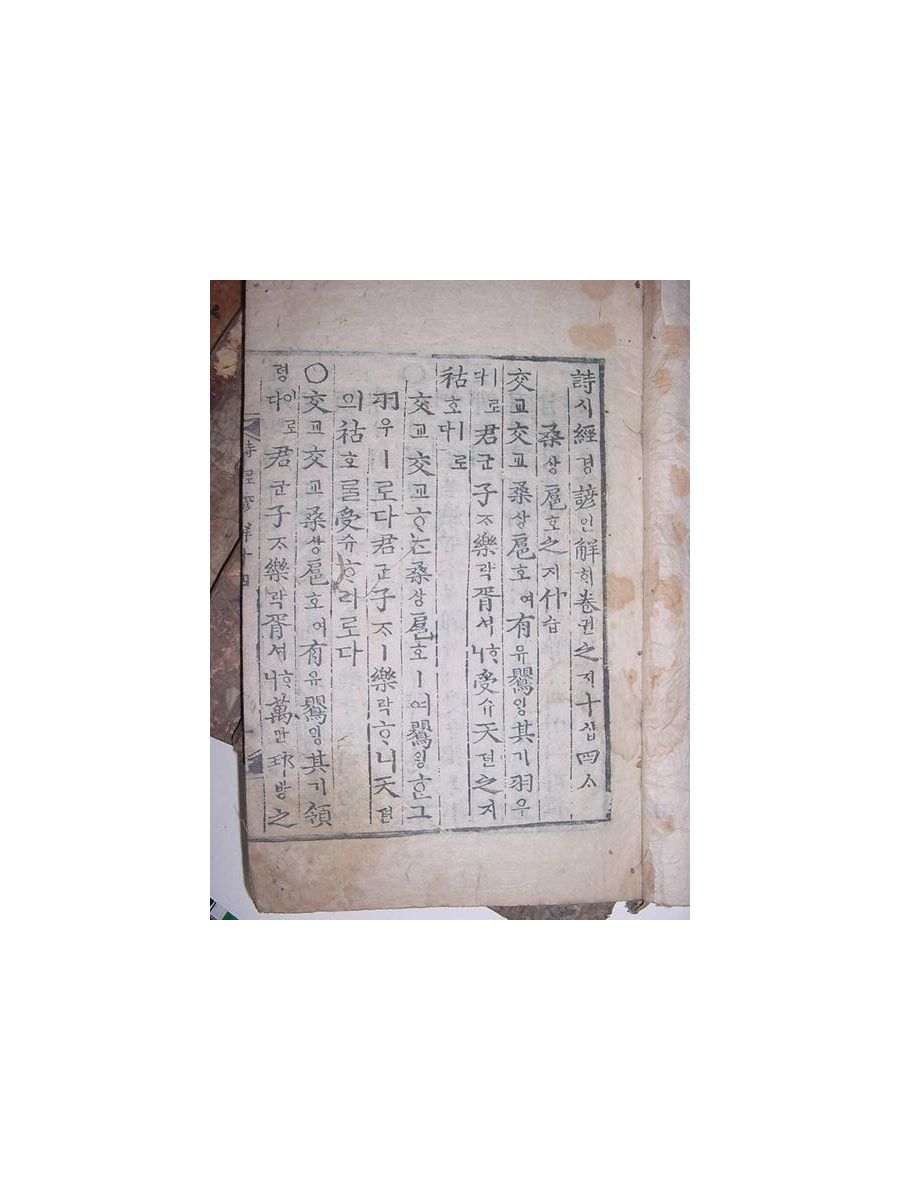 詩시經경諺언解ᄒᆡ卷권之지十십四ᄉᆞ
桑상扈호之지什습
交교交교桑상扈호여有유鸎ᄋᆡᆼ其기羽우
ㅣ로다君군子ᄌᆞ樂락胥셔ᄒᆞ니受슈天텬之지
祜호ㅣ로다
○交교交교ᄒᆞᄂᆞᆫ桑상扈호ㅣ여鸎ᄋᆡᆼᄒᆞᆫ그
羽우ㅣ로다君군子ᄌᆞㅣ樂락ᄒᆞ니天텬
의祜호ᄅᆞᆯ受슈ᄒᆞ리로다
○交교交교桑상扈호여有유鸎ᄋᆡᆼ其기領
령이로다君군子ᄌᆞ樂락胥셔ᄒᆞ니萬만邦방之
詩經諺解十四